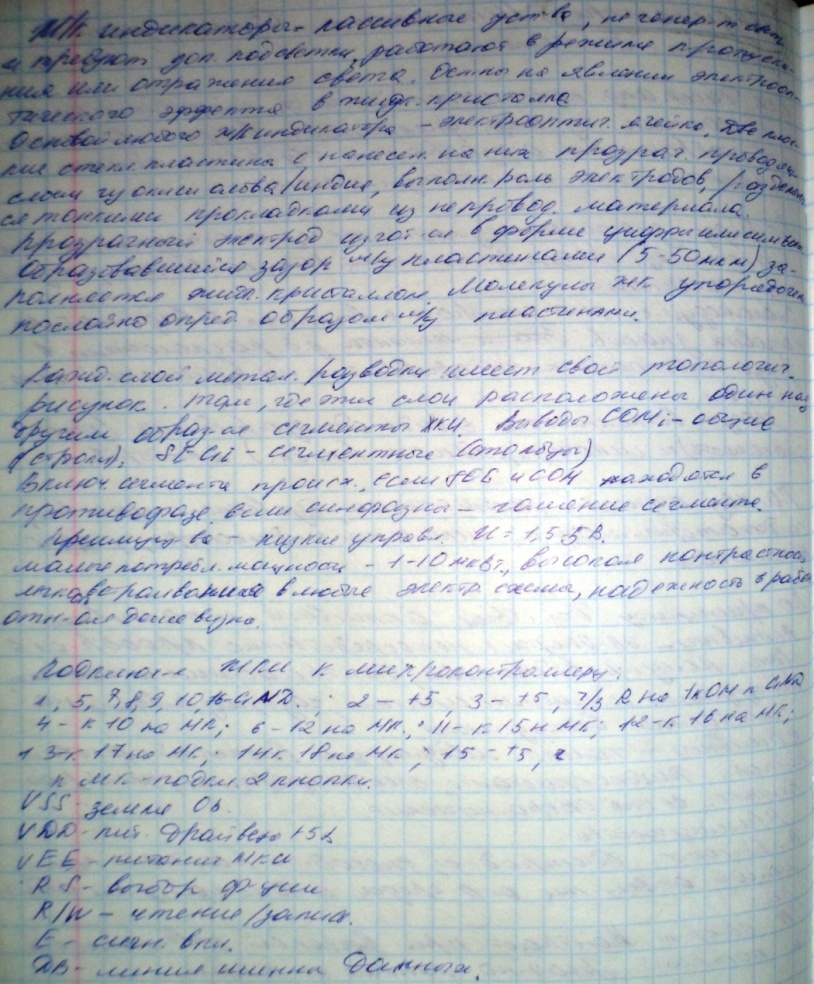 ЖК индикаторы - пассивные уства, не генер-т свет
и требуют доп. подсветки, работают в режиме пропуска-
ния или отражения света. Осн-ны на явлении электрооп-
тического эффекта в жидк. кристалле
Основой любого жк индикатора - электрооптич. ячейка. Две плос-
кие стекл. пластины с нанесен. на них прозрач. проводящ.
слоем из окиси олова/индия, выполн. роль электродов, разделяют
ся тонкими прокладками из непровод. материала.
прозрачный электрод изгот-ся в форме цифры или символа
Образовавшийся зазор м/у пластинами (5-50 мкм) за-
полняется жидк. кристаллом. Молекулы жк упорядочен
послойно опред. образом м/у пластинами.
Кажд. слой метал. разводки имеет свой топологич.
рисунок. там, где эти слои расположены один над
другим образ-ся сегменты ЖКИ. Выводы COMi - общие
(строки), SEGi - сегментные (столбцы)
Включ. сегмента происх., если SEG и COM находятся в
противофазе, если синфазны - гашение сегмента.
Преимущ-ва - низкие управл. U = 1,5-5 В.
малые потребл. мощности - 1-10 мкВт, высокая контрастность
легко встраивание в любые электр. схемы, надежность в работе
отн-ая дешевизна.
Подключ-е ЖКИ к микроконтроллеру:
1, 5, 7,8,9,10,16-GND. ; 2 - +5, 3 - +5, ч/з R на 1кОм к GND
4 - к 10 на МК; 6 - 12 на МК.; 11 - к 15 н МК; 12 - к 16 на МК;
13 - к 17 на МК; 14 к 18 на МК; 15 - +5,
к МК - подкл. 2 кнопки.
VSS - земля 0в.
VDD - пит. драйвера +5в
VEE - питание ЖКИ
RS - выбор ф-ции
R/W - чтение/запись.
E - сигн. вкл.
DB - линия шины данных.